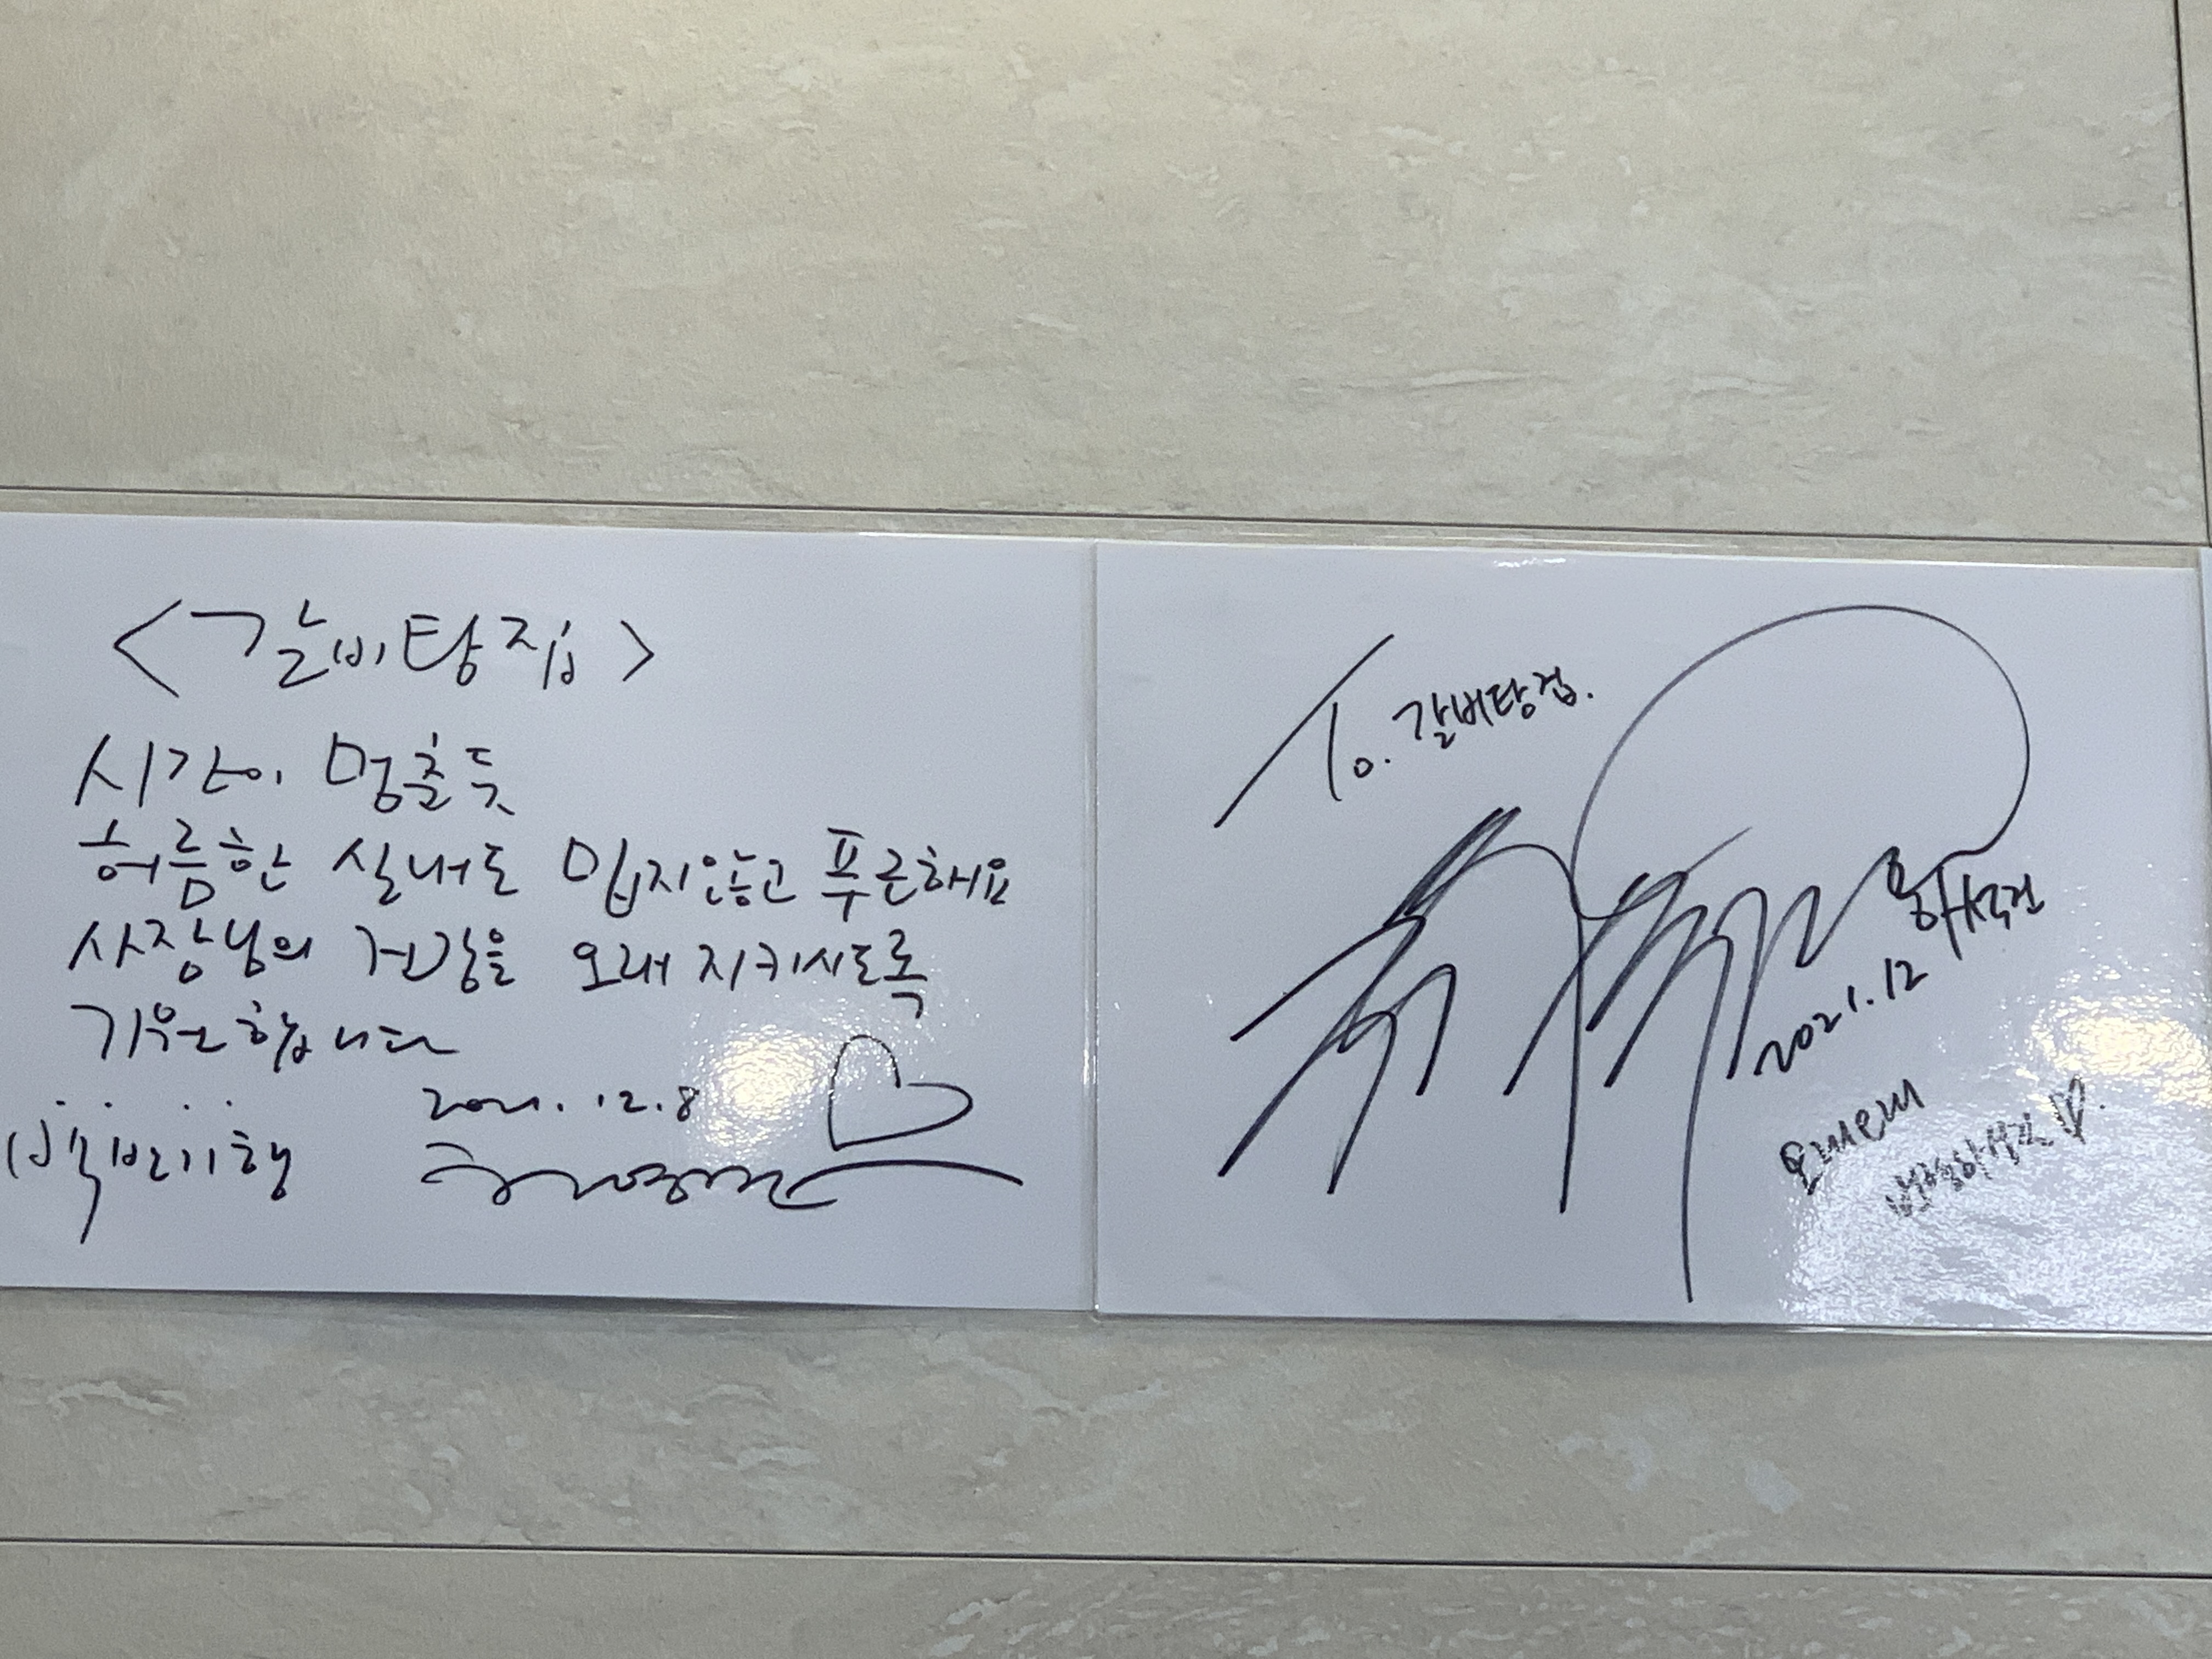 <갈비탕집>
시간이 멈춘듯
허름한 실내도 밉지않고 푸근해요
사장님의 건강을 오래 지키시도록
기원합니다
2021.12.8
식객 허영만
백반기행
To. 갈비탕집.
하석진
2021.12
오래오래
번창하십쇼